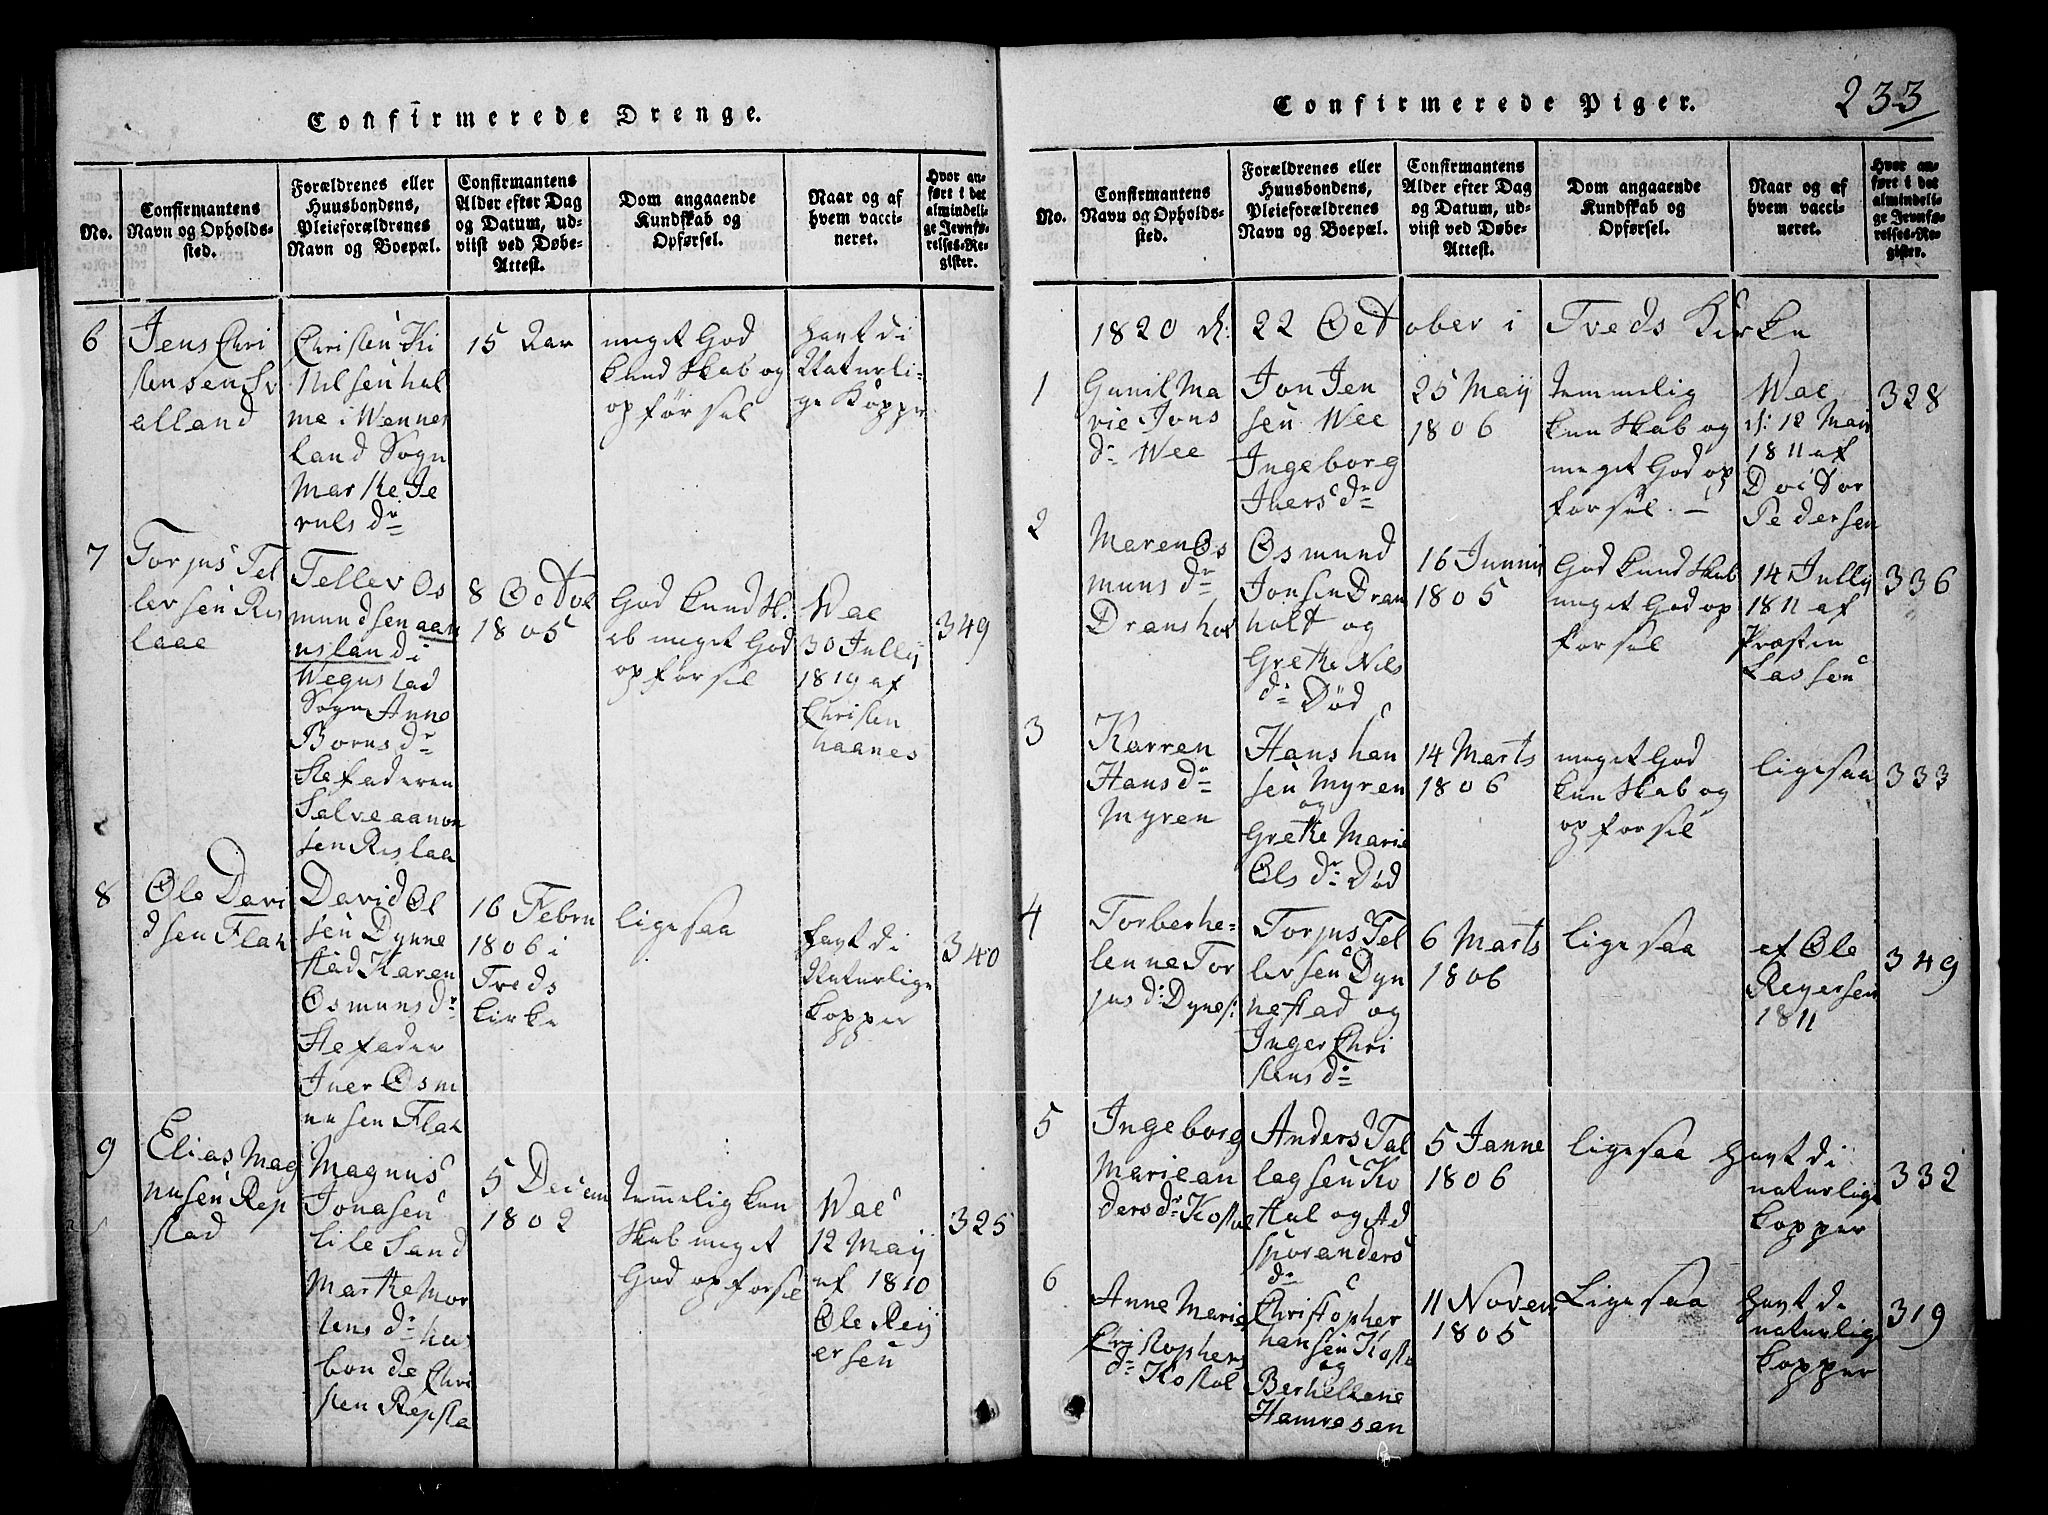 Confirmerede Drenge.
No.
Confirmantens
Navn og Opholds-
sted.
Forældrenes eller
Huusbondens,
Pleieforældrenes
Navn og Boepæl.
Confirmantens
Alder efter Dag
og Datum, ud-
viist ved Døbe-
Attest.
Dom angaaende
Kundskab og
Opførsel.
Naar og af
hvem vacci-
neret.
Hvor an-
ført i det
almindeli-
ge Jevnfø-
relses-Re-
gister.
6
Jens Chri
stensen Sv
alland
Christen Ki
Nilsen hol
me i Wennes
land Sogn
Marthe Je
ruls dr
15 Aar
meget God
kund skab og
opførsel
havt di
Naturli-
ge Kopper
7
Torjus Tel
levsen Ris
laae
Tellev Os
mundsen aan
usland i
Wegus lad
Sogn Anne
Borns dr
Stefaderen
Salve aanon
sen Rislaa
8 Octob
1805
God kundsk.
ab meget God
opforsel
Wac
30 Jully
1819 af
Christen
haanes
349
8
Ole Davi
dsen Flak
David Ol
sen Dynne
stad Karen
Osmuns dr
Stefader
Iver Osm
unsen Flak
16 Febru
1806 i
Treds
kirke
ligesaa
havt di
Naturlige
kopper
340
9
Elias Mag
nusen Rep
stad
Magnus
Jonasen
Lile Sand
Marthe Mor
tens dr hus
bonde Chri
sten Repsta
5 Decem
1802
temmelig kun
skab meget
God opforsel
Wac
12 Maij
af 1810
Ole Reij
ersen
325
Confirmerede Piger.
233
No.
Confirmantens
Navn og Opholds-
sted.
Forældrenes eller
Huusbondens,
Pleieforældrenes
Navn og Boepæl.
Confirmantens
Alder efter Dag
og Datum, ud-
viist ved Døbe-
Attest.
Dom angaaende
Kundskab og
Opførsel.
Naar og af
hvem vacci-
neret.
Hvor an-
ført i det
almindeli-
ge Jevnfø-
relses-Re-
gister.
1820 d: 22 October i Treds Kirke
1
Gunil Ma
rie Jons
dr Wee
Jon Jen
sen Wee
Ingeborg
Ihers dr
25 Maij
1806
temmelig
kunskab og
meget God op
forsel. —
Wac
d: 12 Mai
1811 af
Doctor
Pedersen
328
2
Maren Os
muns dr
Dransholt
Osmund
Jonsen Dran
holt og
Grethe Nils
dr Död
16 Junni
1805
God kundskab
meget God op
forsel
14 Jully
1811 af
Præsten
Lassen
336
3
Karren
Hans dr
Myren
Hans han
sen Myren
og
Grethe Marie
Ols dr Död
14 Marts
1806
meget God
kunskab og
opforsel
ligesaa
333
4
Torberhe-
lenne Tor
jus dr Dynes:
Torjus Tel
levsen Dyn
nestad og
Inger Chri
stens dr
6 Marts
1806
ligesaa
af Ole
Reyersen
1811
349
5
Ingeborg
Marie an
ders dr Kostøl
Anders Tal
lagsen Ko
støl og Ad
sporanders
dr
5 Janne
1806
ligesaa
havt di
naturlige
kopper
332
6
Anne Marie
Christophers
dr Kostøl
Christopher
hansen Kostø
og
Berhellene
Hamresan
11 Novem
1805
Ligesaa
havt de
naturlige
kopper
319